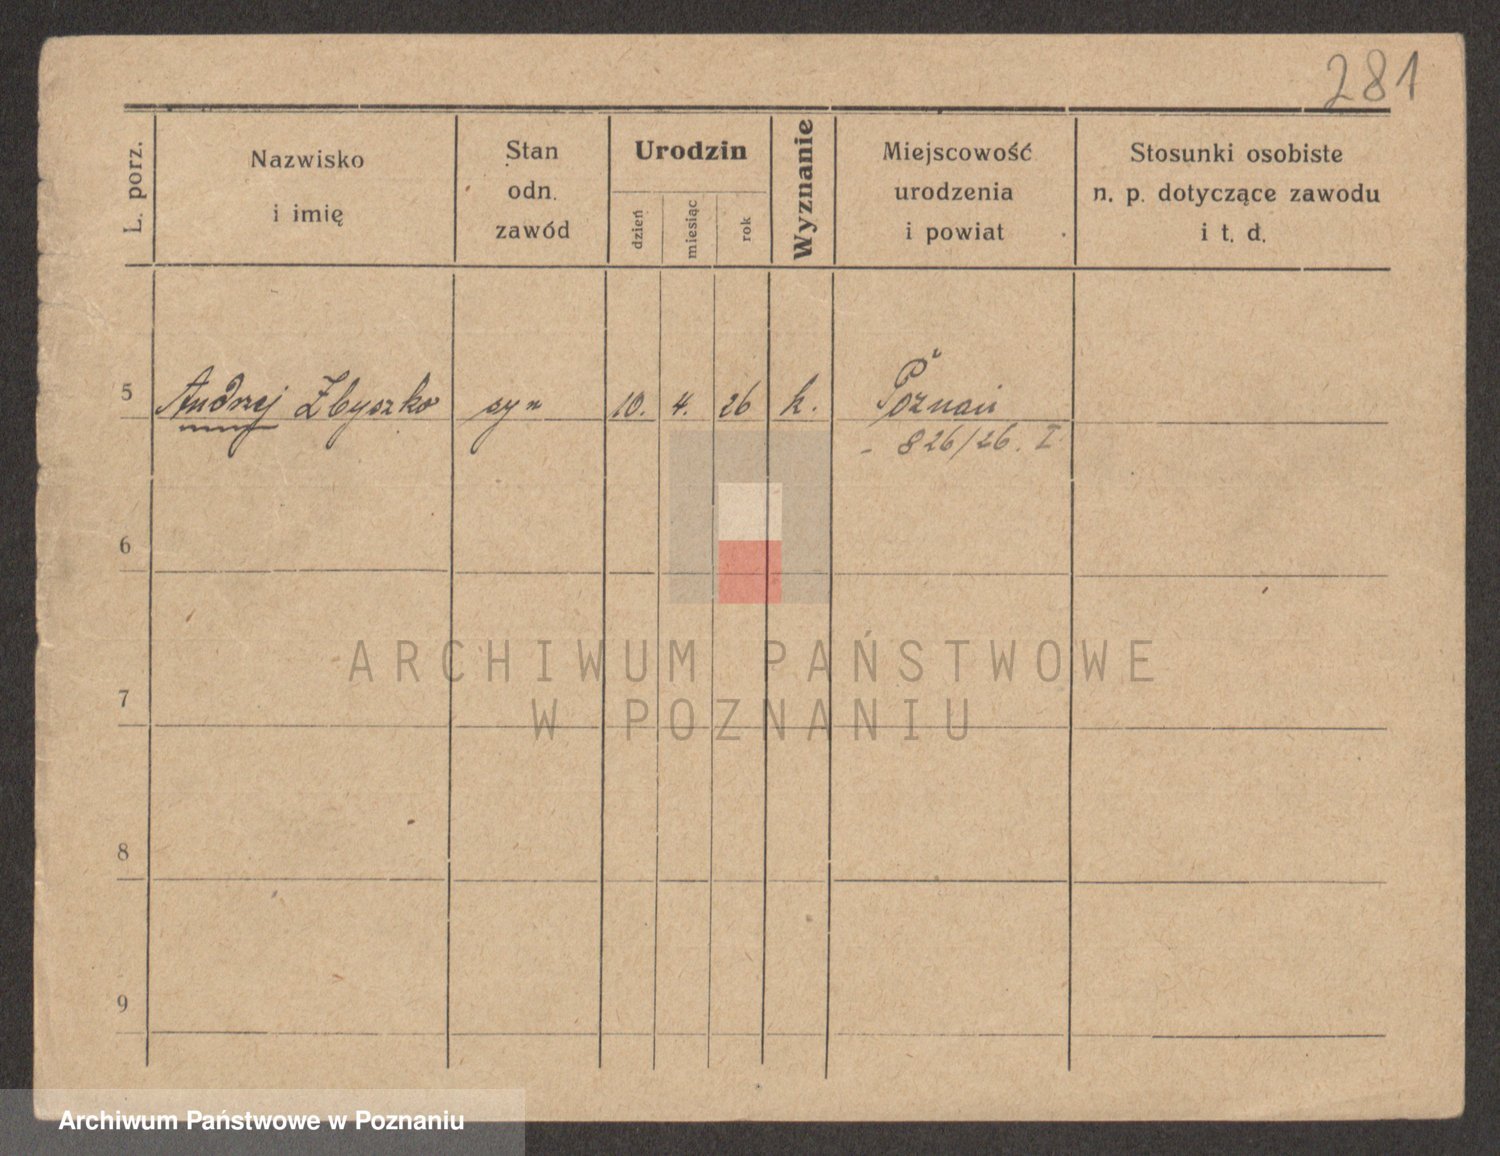 281
L. porz.
Nazwisko
i imię
Stan
odn.
zawód
Urodzin
dzień
miesiąc
rok
Wyznanie
Miejscowość
urodzenia
i powiat
Stosunki osobiste
n. p. dotyczące zawodu
i t. d.
5 Andrzej Zbyszko syn 10. 4. 26 k. Poznań
- 826/26. I
6
7
8
9
ARCHIWUM PAŃSTWOWE
W POZNANIU
Archiwum Państwowe w Poznaniu